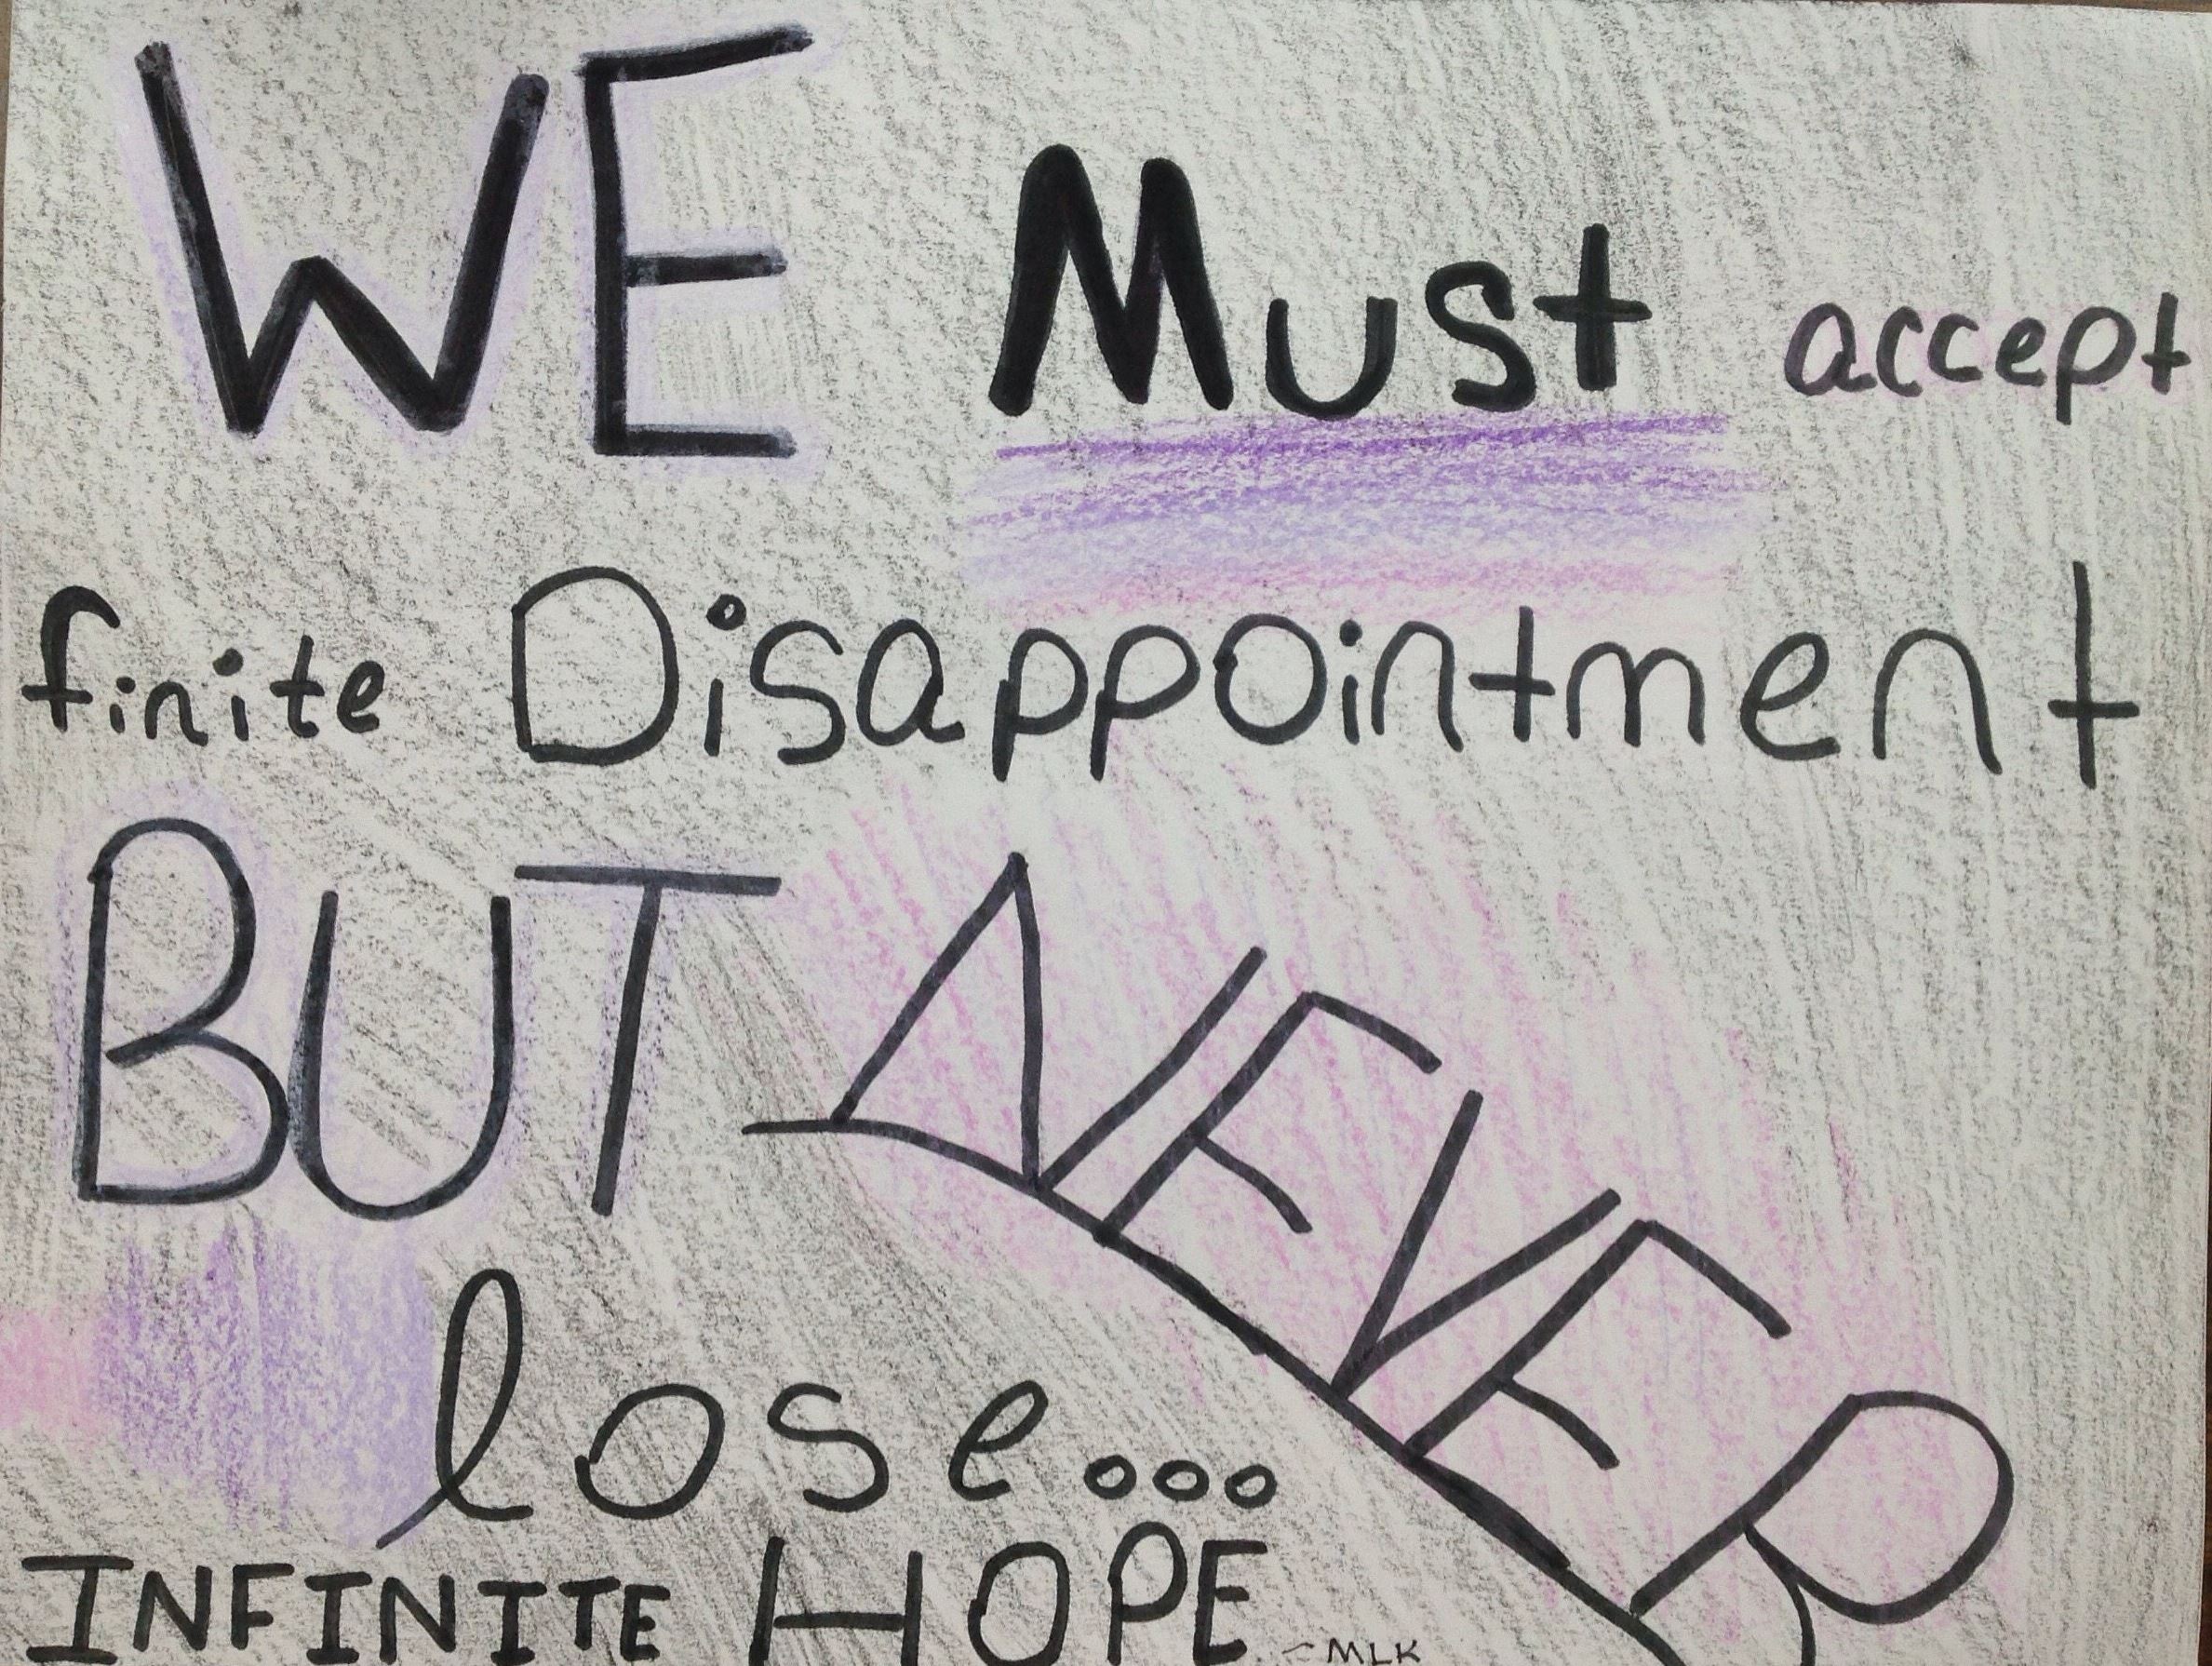 WE Must accept
finite Disappointment
BUT NEVER
lose...
INFINITE HOPE ~MLK